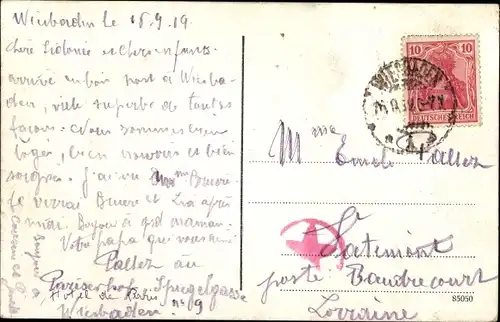 Wiesbaden le 18.9.19
Chère Sidonie et chers enfants
arrivé en bon port à Wiesba-
den, ville superbe de toutes
façons. Nous sommes bien
logés, bien nourris et bien
soignés. j'ai vu Mme
Je verrai et Léa après
midi. Bonjour à gd maman.
Votre papa qui vous aime
Pallez
Bonjour à
Pariserhof Spiegelgasse
Hotel de Paris n° 9
Wiesbaden
10
DEUTSCHES REICH
WIESBADEN
Mme Emile Pallez
Hattemont
poste Baudrecourt
Lorraine
85050